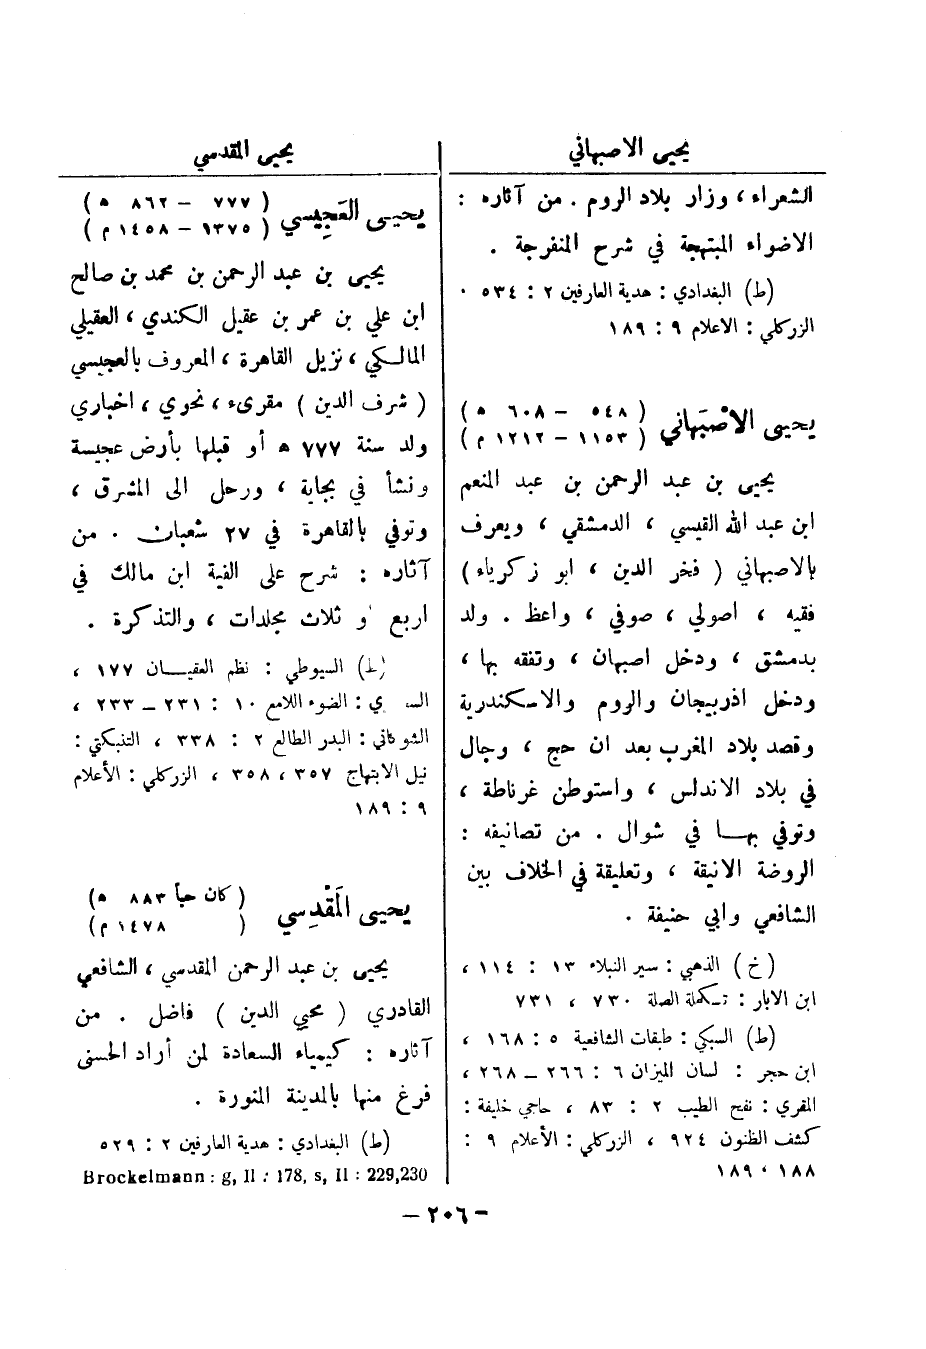 يحيى الاصبهاني
الشعراء ، وزار بلاد الروم . من آثاره :
الاضواء المبتهجة في شرح المنفرجة .
(ط) البغدادي : هدية العارفين ٢ : ٥٣٤ .
الزركلي : الاعلام ٩ : ١٨٩
يحيى الاصْبَهاني ( ٥٤٨ – ٦٠٨ ه )
( ١١٥٣ – ١٢١٢ م )
يحيى بن عبد الرحمن بن عبد المنعم
ابن عبد الله القيسي ، الدمشقي ، ويعرف
بالاصبهاني ( فخر الدين ، ابو زكرياء )
فقيه ، اصولي ، صوفي ، واعظ . ولد
بدمشق ، ودخل اصبهان ، وتفقه بها ،
ودخل اذربيجان والروم والاسكندرية
وقصد بلاد المغرب بعد ان حج ، وجال
في بلاد الاندلس ، واستوطن غرناطة ،
وتوفي بهـا في شوال . من تصانيفه :
الروضة الانيقة ، وتعليقة في الخلاف بين
الشافعي وابي حنيفة .
( خ ) الذهبي : سير النبلاء ١٣ : ١١٤ ،
ابن الابار : تكملة الصلة ٧٣٠ ، ٧٣١
(ط) السبكي : طبقات الشافعية ٥ : ١٦٨ ،
ابن حجر : لسان الميزان ٦ : ٢٦٦ – ٢٦٨ ،
المقري : نفح الطيب ٢ : ٨٣ ، حاجي خليفة :
كشف الظنون ٩٢٤ ، الزركلي : الأعلام ٩ :
١٨٨ ، ١٨٩
يحيى المقدسي
يحيـى العَجِيسي ( ٧٧٧ – ٨٦٢ ه )
( ١٣٧٥ – ١٤٥٨ م )
يحيى بن عبد الرحمن بن محمد بن صالح
ابن علي بن عمر بن عقيل الكندي ، العقيلي
المالكي ، نزيل القاهرة ، المعروف بالعجيسي
( شرف الدين ) مقرىء ، نحوي ، اخباري
ولد سنة ٧٧٧ ه أو قبلها بأرض عجيسة
ونشأ في بجاية ، ورحل الى المشرق ،
وتوفي بالقاهرة في ٢٧ شعبان . من
آثاره : شرح على الفية ابن مالك في
اربع و ثلاث مجلدات ، والتذكرة .
(ط) السيوطي : نظم العقيـان ١٧٧ ،
الس ي : الضوء اللامع ١٠ : ٢٣١ – ٢٣٣ ،
الشوكاني : البدر الطالع ٢ : ٣٣٨ ، التنبكتي :
نيل الابتهاج ٣٥٧ ، ٣٥٨ ، الزركلي : الأعلام
٩ : ١٨٩
يحيى المَقْدِسي ( كان حيا ٨٨٣ ه )
( ١٤٧٨ م )
يحيى بن عبد الرحمن المقدسي ، الشافعي
القادري ( محيي الدين ) فاضل . من
آثاره : كيمياء السعادة لمن أراد الحسنى
فرغ منها بالمدينة المنورة .
(ط) البغدادي : هدية العارفين ٢ : ٥٢٩
Brockelmann : g, II : 178, s, II : 229,230
– ٢٠٦ –